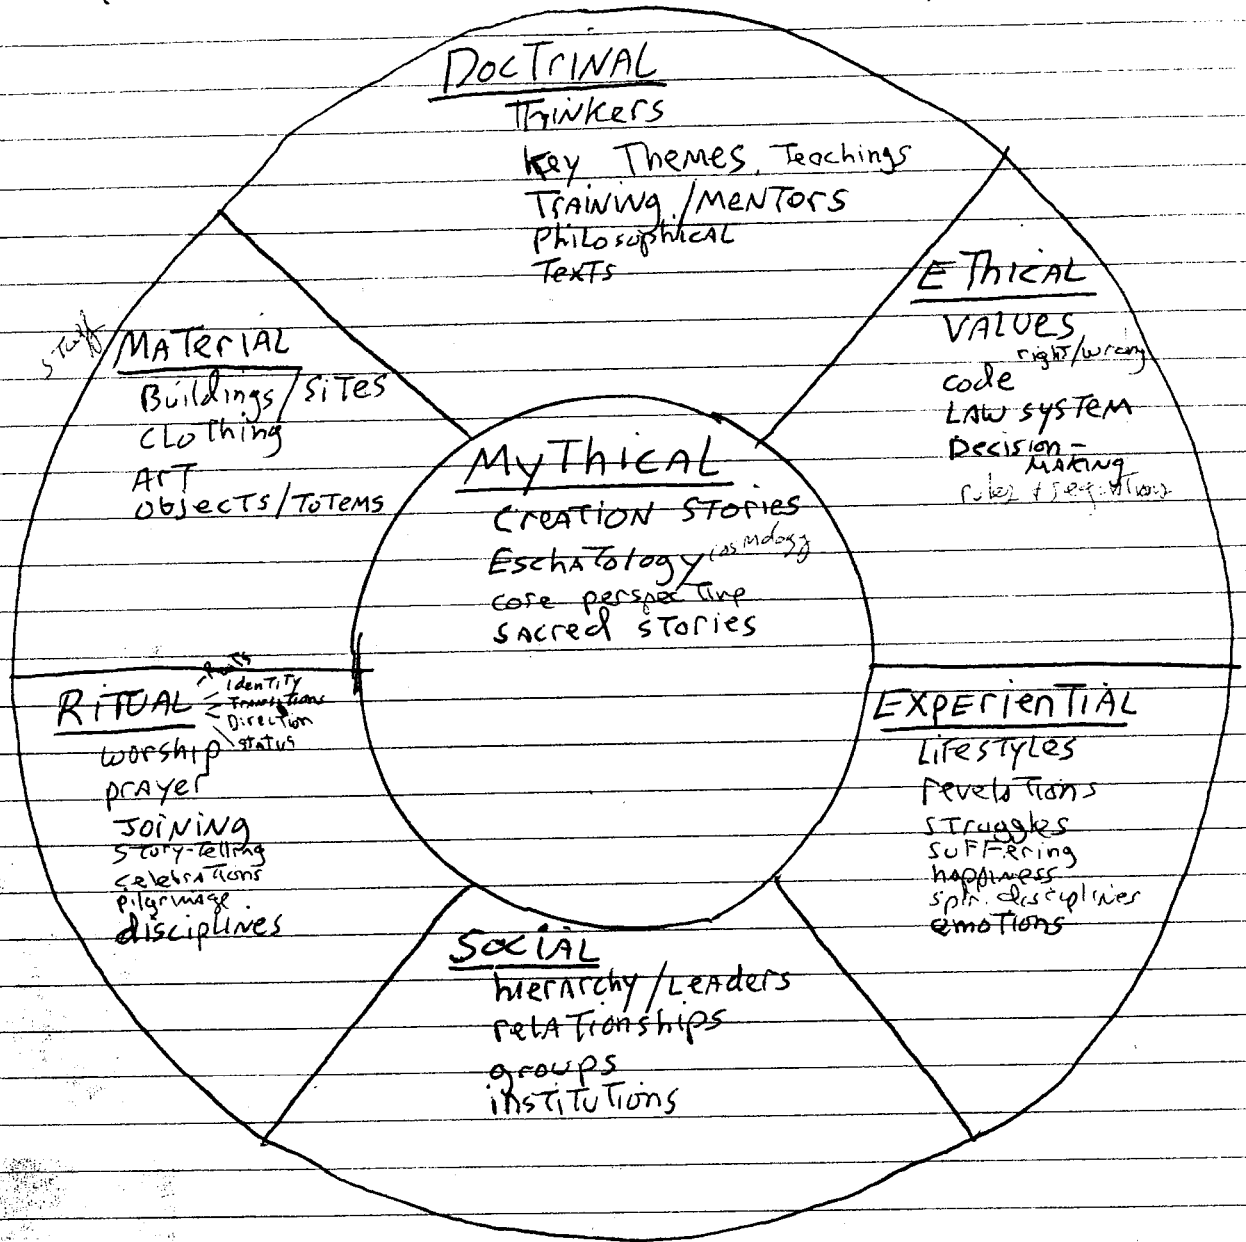 DOCTRINAL
Thinkers
Key Themes, Teachings
Training/Mentors
Philosophical
Texts
Ethical
Values
right/wrong
code
Law system
Decision-
Making
rules + regulations
stuff
Material
Buildings/Sites
Clothing
Art
Objects/Totems
Mythical
Creation Stories
Eschatology cosmology
core perspective
sacred stories
Ritual
Identity
Transitions
Direction
status
worship
prayer
Joining
Story-telling
celebrations
pilgrimage
disciplines
Experiential
Lifestyles
revelations
struggles
suffering
happiness
spir. disciplines
emotions
Social
hierarchy/Leaders
relationships
groups
institutions